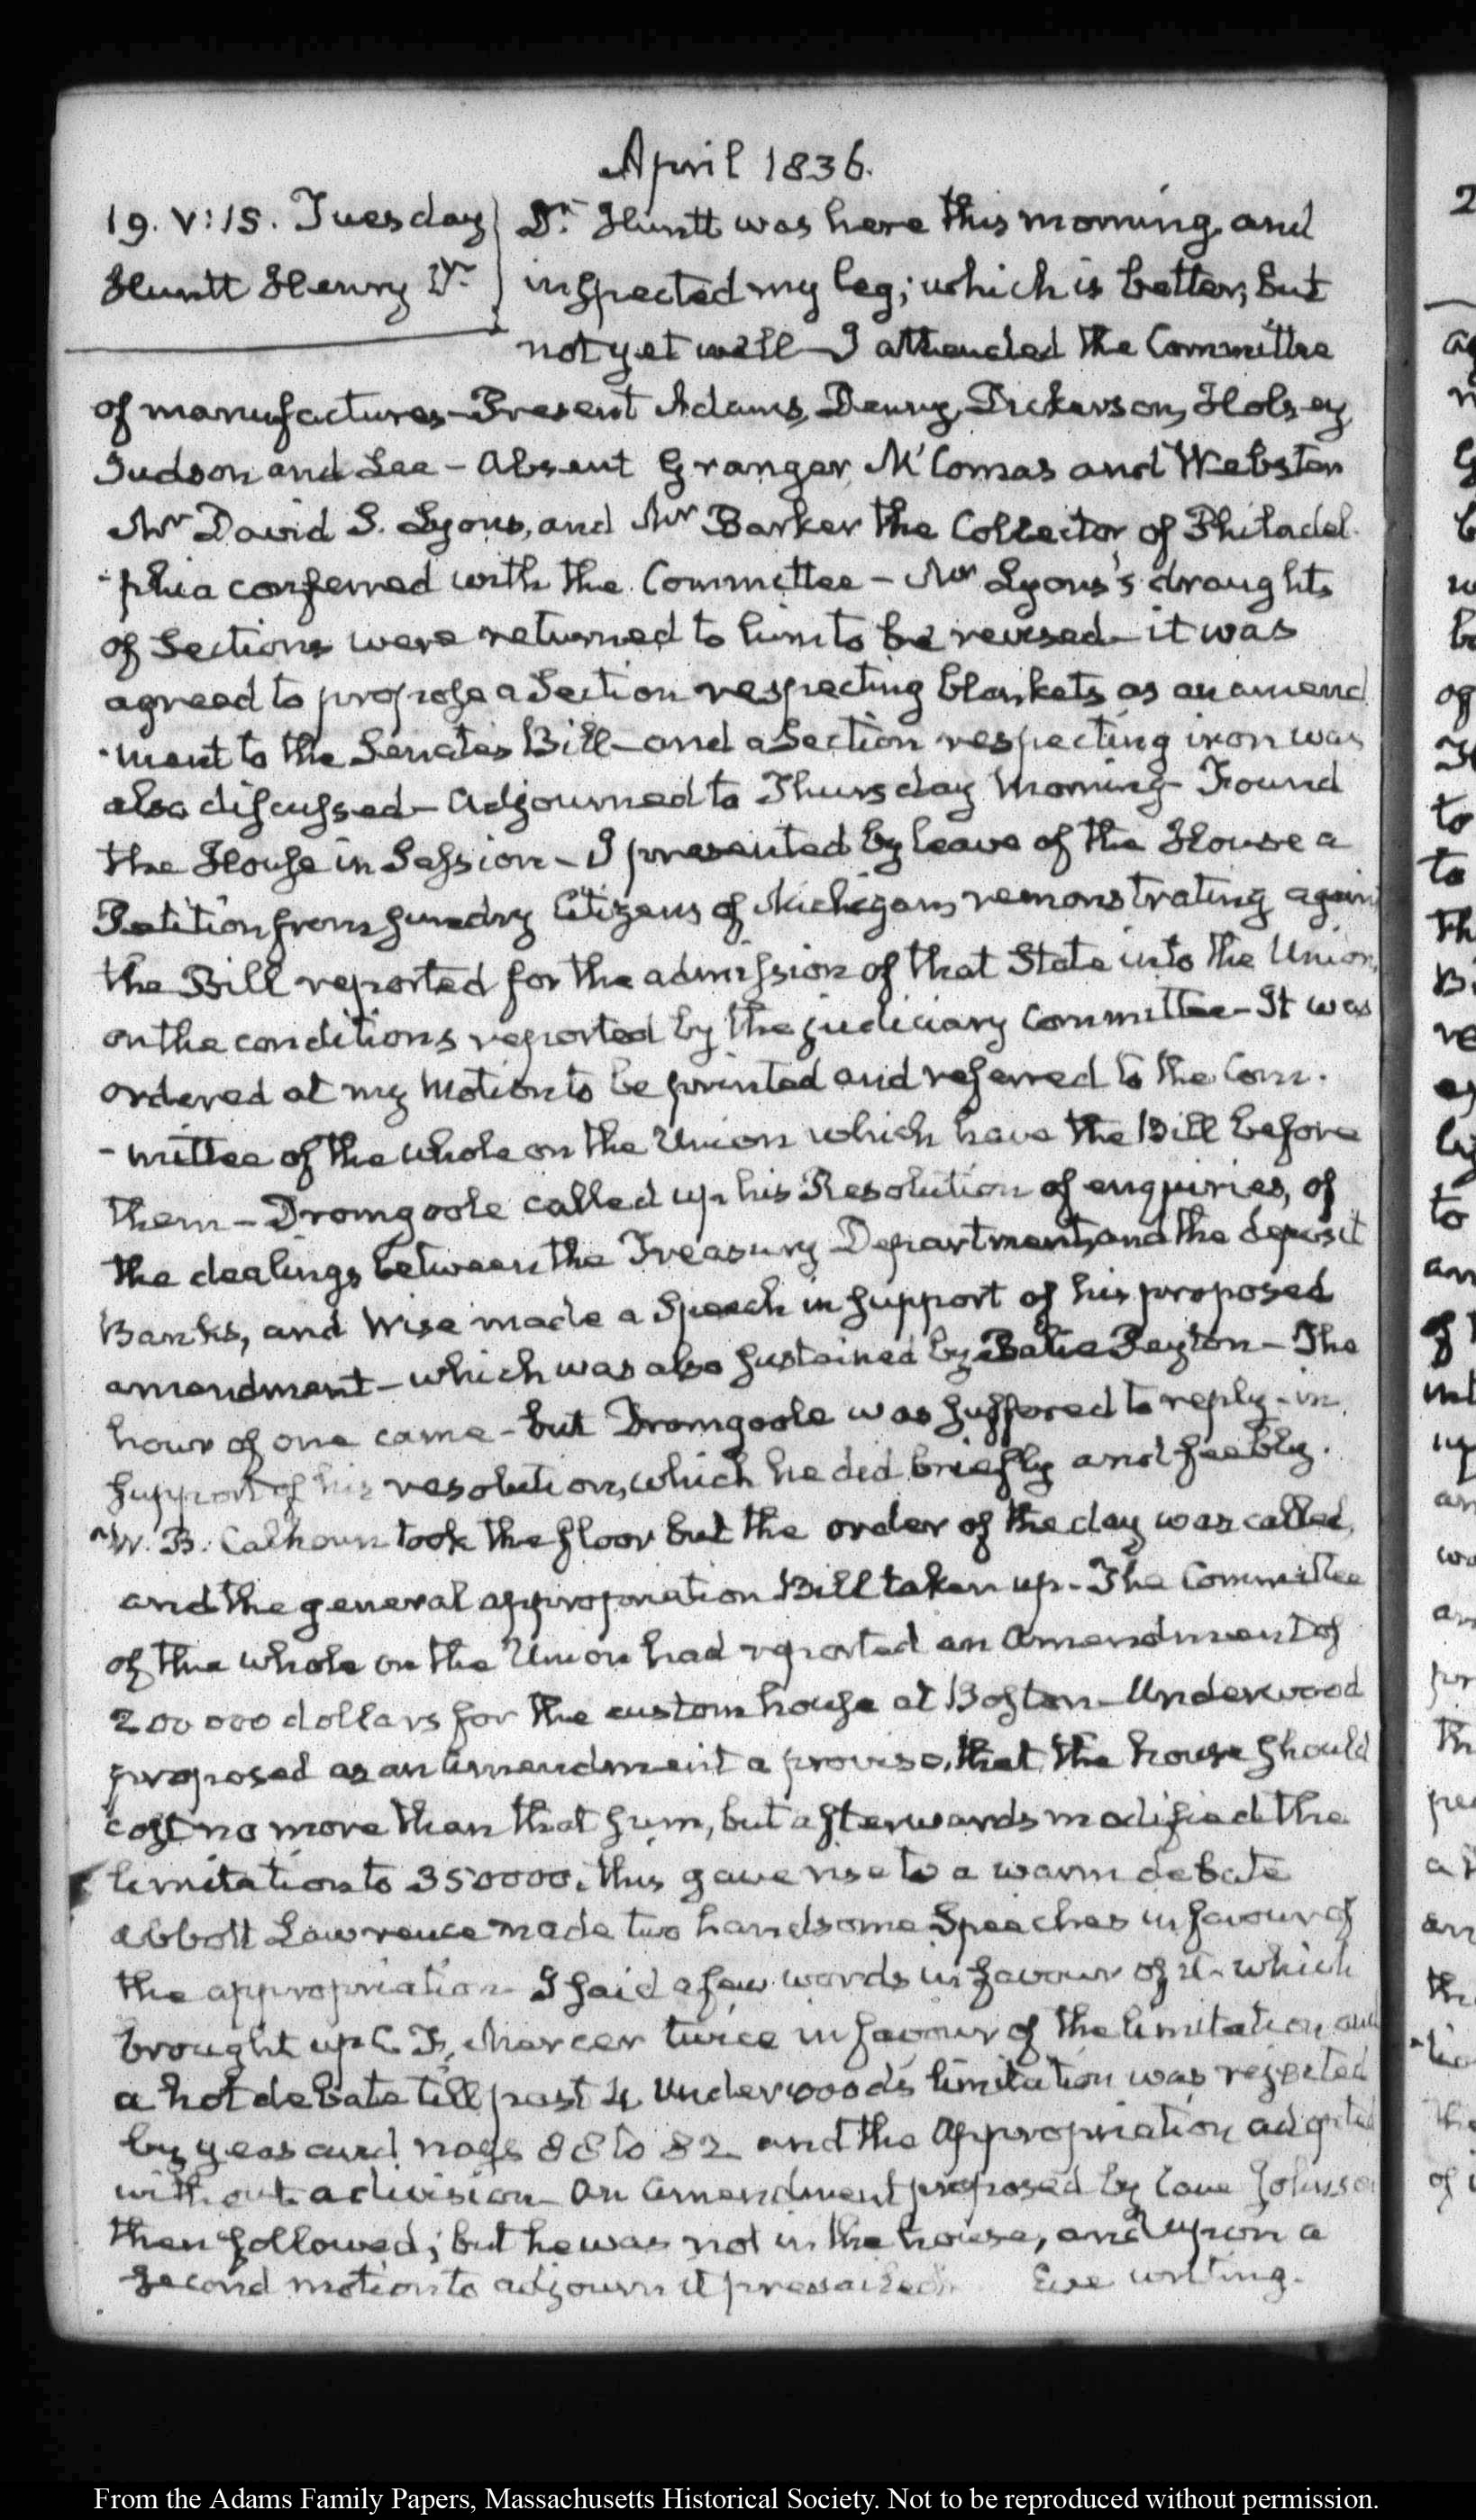 April 1836.
19. V:15. Tuesday
Huntt Henry Dr.
Dr. Huntt was here this morning, and
inspected my leg; which is better, but
not yet well — I attended the Committee
of manufactures — Present Adams, Denny, Dickerson, Holsey,
Judson and Lee — Absent Granger, McComas and Webster
Mr David S. Lyons, and Mr Barker the Collector of Philadel-
-phia conferred with the Committee — Mr Lyons's draughts
of Sections were returned to him to be revised — it was
agreed to propose a Section respecting blankets, as an amend
-ment to the Senates Bill — and a Section respecting iron was
also discussed — Adjourned to Thursday Morning — Found
the House in Session — I presented by leave of the House a
Petition from sundry Citizens of Michigan, remonstrating against
the Bill reported for the admission of that State into the Union,
on the conditions reported by the judiciary Committee — It was
ordered at my Motion to be printed and referred to the Com-
-mittee of the whole on the Union which have the Bill before
them — Dromgoole called up his Resolution of enquiries, of
the dealings between the Treasury Department, and the deposit
Banks, and Wise made a Speech in support of his proposed
amendment — which was also sustained by Balie Peyton — The
hour of one came — but Dromgoole was suffered to reply — in
support of his resolution, which he did briefly and feebly.
W. B. Calhoun took the floor but the order of the day was called,
and the general appropriation Bill taken up — The Committee
of the whole on the Union had reported an Amendment of
200 000 dollars for the custom house at Boston — Underwood
proposed as an Amendment a proviso, that the house should
cost no more than that sum, but afterwards modified the
limitation to 350000. this gave rise to a warm debate
Abbott Lawrence made two handsome Speeches in favour of
the appropriation — I said a few words in favour of it — which
brought up C. F. Mercer twice in favour of the limitation, and
a hot debate till past 4. Underwood's limitation was rejected
by yeas and nays 88 to 82 and the Appropriation adopted
without a division — An Amendment proposed by Cave Johnson
then followed; but he was not in the house, and upon a
second motion to adjourn it prevailed. Eve writing.
From the Adams Family Papers, Massachusetts Historical Society. Not to be reproduced without permission.